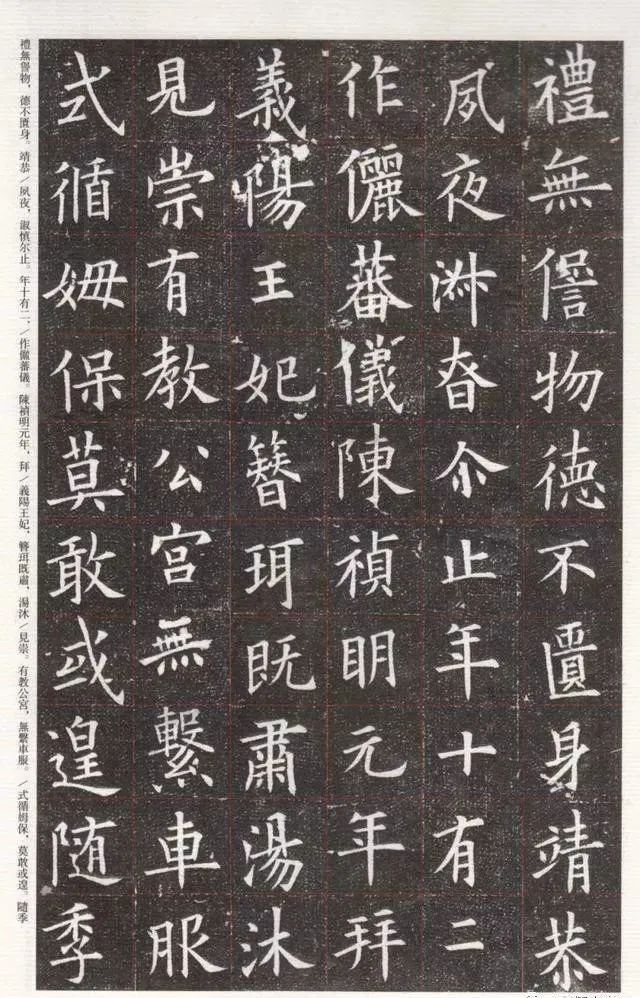 禮無諐物德不匱身靖恭
夙夜淑昚尒止年十有二
作儷蕃儀陳禎明元年拜
義陽王妃簪珥既肅湯沐
見崇有教公宮無繫車服
式循姆保莫敢或遑随季
禮無諐物，德不匱身。靖恭／夙夜，淑慎尔止。年十有二，／作儷蕃儀。陳禎明元年，拜／義陽王妃，簪珥既肅，湯沐／見崇。有教公宮，無繫車服。／式循姆保，莫敢或遑。隨季